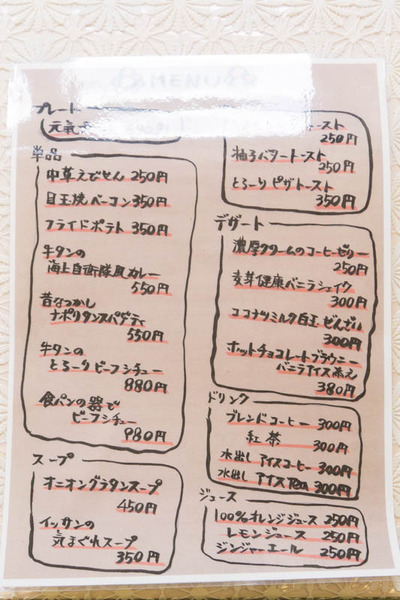 MENU
プレート
元気
単品
中華えびせん 250円
目玉焼ベーコン 350円
フライドポテト 350円
牛タンの
海上自衛隊風カレー
550円
昔なつかし
ナポリタンスパゲティ
550円
牛タンの
とろーりビーフシチュー
880円
食パンの器で
ビーフシチュー
980円
スープ
オニオングラタンスープ
450円
イッサンの
気まぐれスープ
350円
トースト
250円
柚子バタートースト
250円
とろーりピザトースト
350円
デザート
濃厚クリームのコーヒーゼリー
250円
麦芽健康バニラシェイク
300円
ココナツミルク白玉ぜんざい
300円
ホットチョコレートブラウニー
バニラアイス添え
380円
ドリンク
ブレンドコーヒー 300円
紅茶 300円
水出しアイスコーヒー 300円
水出しアイスTea 300円
ジュース
100%オレンジジュース 250円
レモンジュース 250円
ジンジャーエール 250円